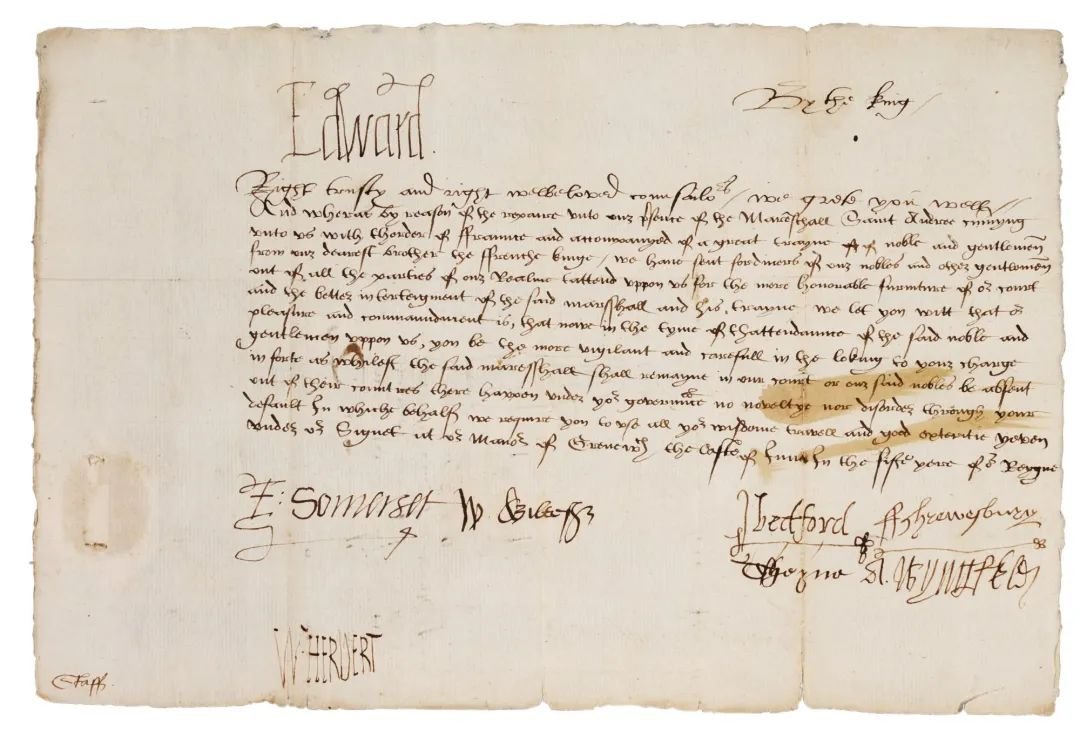 Edward
By the king
Right trusty and right welbeloved counsailors we grete you well
And whereas by reason of the repaire unto our presence of the Mareschall Saint Andree comyng
unto us with thorder of ffraunce and accompanyed of a great trayne of noble and gentlemen
from our dearest brother the ffrenche kinge, we have sent for diuers of our nobles and other gentlemen
out of all the parties of our Realme tattend uppon us for the more honorable furniture of or court
and the better interteigment of the said maresshall and his trayne we let you witt that or
pleasure and commaundment is, that now in the tyme of thattendaunce of the said noble and
gentlemen uppon us, you be the more vigilant and carefull in the loking to your charge
in sorte as whilest the said maresshall shall remayne in our court or our said nobles be absent
out of their countres there happen under yor governmce no noveltye nor disorder through your
default In whiche behalf we require you to use all yor wisdome travell and good exteritie yeven
under or Signet at or Manor of Grenewch the laste of June In the fifte yere of or Reigne
E: Somerset W Wiltesh
J Bedford ffshrewesbury
Tho A. Wyngfeld
W. HERBERT
Staff.